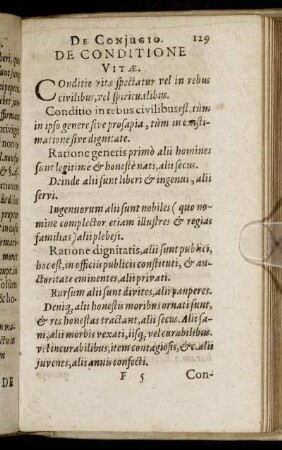 DE CONJUGIO. 129
DE CONDITIONE
VITÆ.
COnditio vitæ spectatur vel in rebus
civilibus, vel spiritualibus.
Conditio in rebus civilibus est, tùm
in ipso genere sive prosapia, tùm in existi-
matione sive dignitate.
Ratione generis primò alii homines
sunt legitimè & honestè nati, alii secus.
Deinde alii sunt liberi & ingenui, alii
servi.
Ingenuorum alii sunt nobiles (quo no-
mine complector etiam illustres & regias
familias) alii plebeji.
Ratione dignitatis, alii sunt publici,
hoc est, in officiis publicis constituti, & au-
ctoritate eminentes, alii privati.
Rursum alii sunt divites, alii pauperes.
Deniq; alii honestis moribus ornati sunt,
& res honestas tractant, alii secus. Alii sa-
ni, alii morbis vexati, iisq; vel curabilibus
vel incurabilibus, item contagiosis, &c. alii
juvenes, alii annis confecti.
F 5 Con-
DE